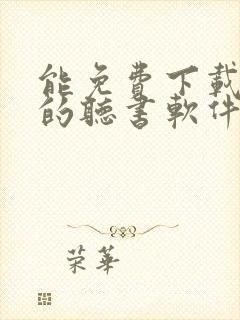 能免費下載
的聽書軟件
荣華